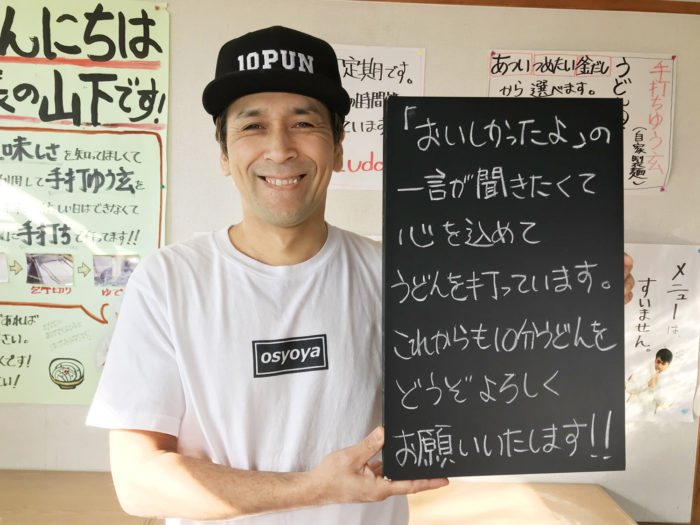 んにちは
の山下です!
味しさを知ってほしくて
用して手打ゆう玄を
しい日はできなくて
に手打ちで作ってます!!
ゆで
であれば
さい。
です!
たい!
10PUN
定期です。
の時間
ています
udo
あつい つめたい 釜だし
から選べます。
うどん
手打ちゆう玄
(自家製麺)
メニューは
すいません。
osyoya
「おいしかったよ」の
一言が聞きたくて
心を込めて
うどんを打っています。
これからも10分うどんを
どうぞよろしく
お願いいたします!!